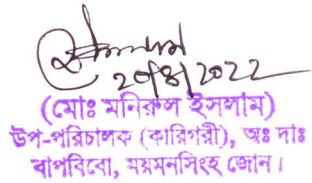 ২০/৪/২০২২
(মোঃ মনিরুল ইসলাম)
উপ-পরিচালক (কারিগরী), অঃ দাঃ
বাপবিবো, ময়মনসিংহ জোন।